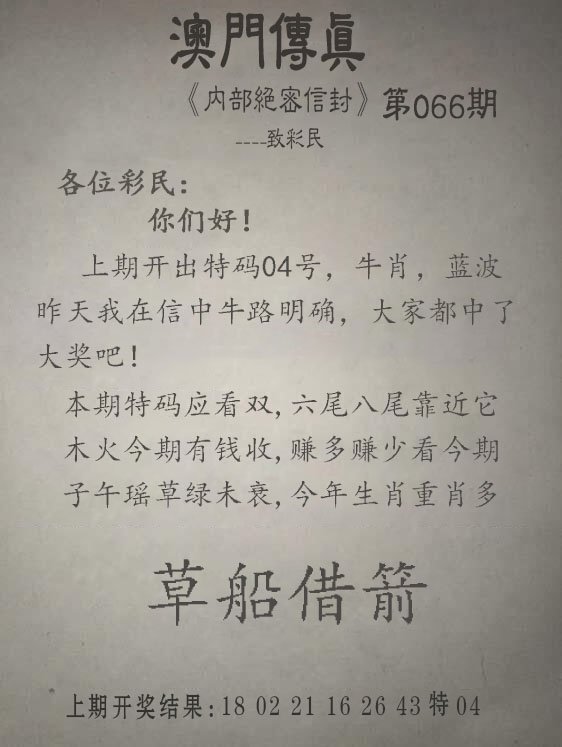 澳門傳真
《内部絕密信封》第066期
----致彩民
各位彩民：
你们好！
上期开出特码04号，牛肖，蓝波
昨天我在信中牛路明确，大家都中了
大奖吧！
本期特码应看双,六尾八尾靠近它
木火今期有钱收,赚多赚少看今期
子午瑶草绿未衰,今年生肖重肖多
草船借箭
上期开奖结果:18 02 21 16 26 43 特 04